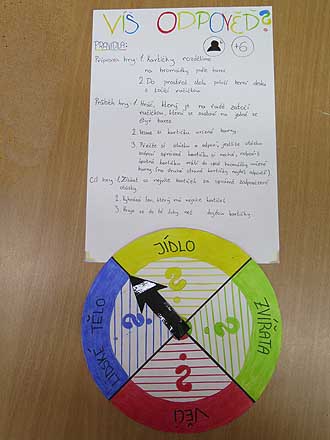 VÍŠ ODPOVĚĎ?
PRAVIDLA:
+6
Příprava hry: 1. Kartičky rozdělíme
na hromádky podle barev
2. Do prostřed stolu položí herní desku
s točící ručičkou
Průběh hry: 1. Hráč, který je na řadě zatočí
ručičkou, která se zastaví na jedné ze
čtyř barev
2. Vezme si kartičku určené barvy
3. Přečte si otázku a odpoví, jestliže otázku
správně kartičku si nechá,
kartičku vrátí do
barvy (na druhé straně kartičky najdeš odpověď)
Cíl hry: 1. Získat co nejvíce kartiček za správné zodpovězení
otázky.
2. Vyhrává ten, který má nejvíce kartiček
3. Hraje se do té doby než dojdou kartičky.
JÍDLO
ZVÍŘATA
LIDSKÉ TĚLO
VĚCI
?
?
?
?